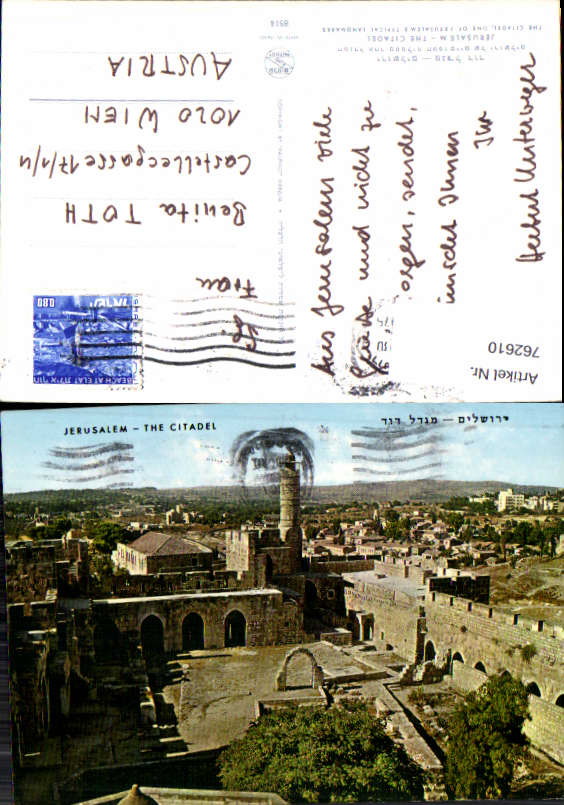 8518
ירושלים — מגדל דוד
JERUSALEM — THE CITADEL
THE CITADEL, ONE OF JERUSALEM'S TYPICAL LANDMARKS
Aus Jerusalem viele
Grüße und nicht zu
sorgen, sendet,
wünscht Ihnen
Ihr
Herbert Unterweger
Frau
Benita TOTH
Castellezgasse 17/1/4
1020 WIEN
AUSTRIA
0.80
BEACH AT ELAT
Artikel Nr.
762610
JERUSALEM – THE CITADEL
ירושלים — מגדל דוד